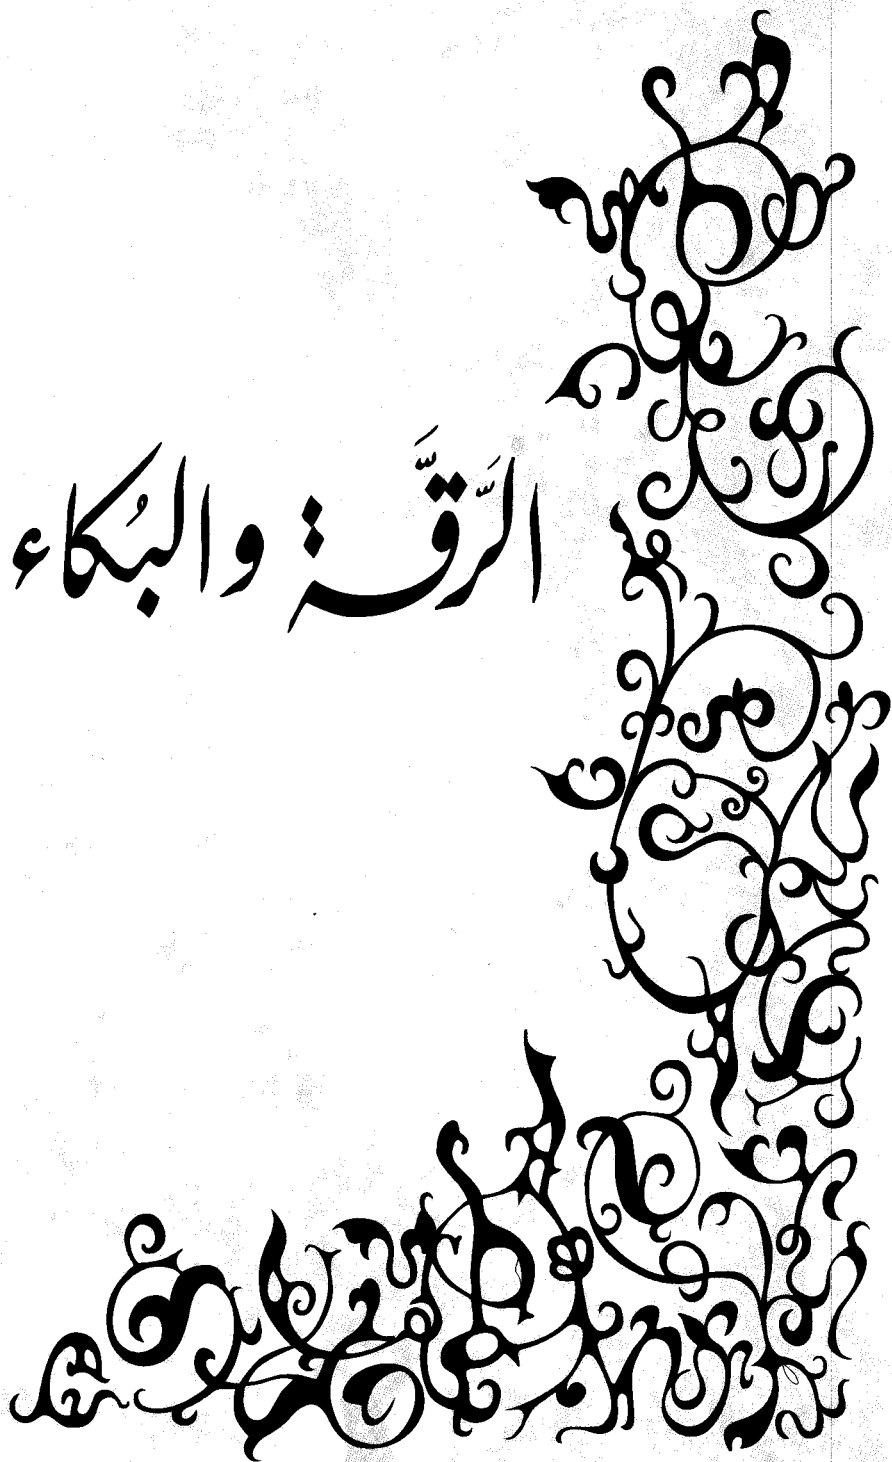 الرَّقَّة والبُكاء